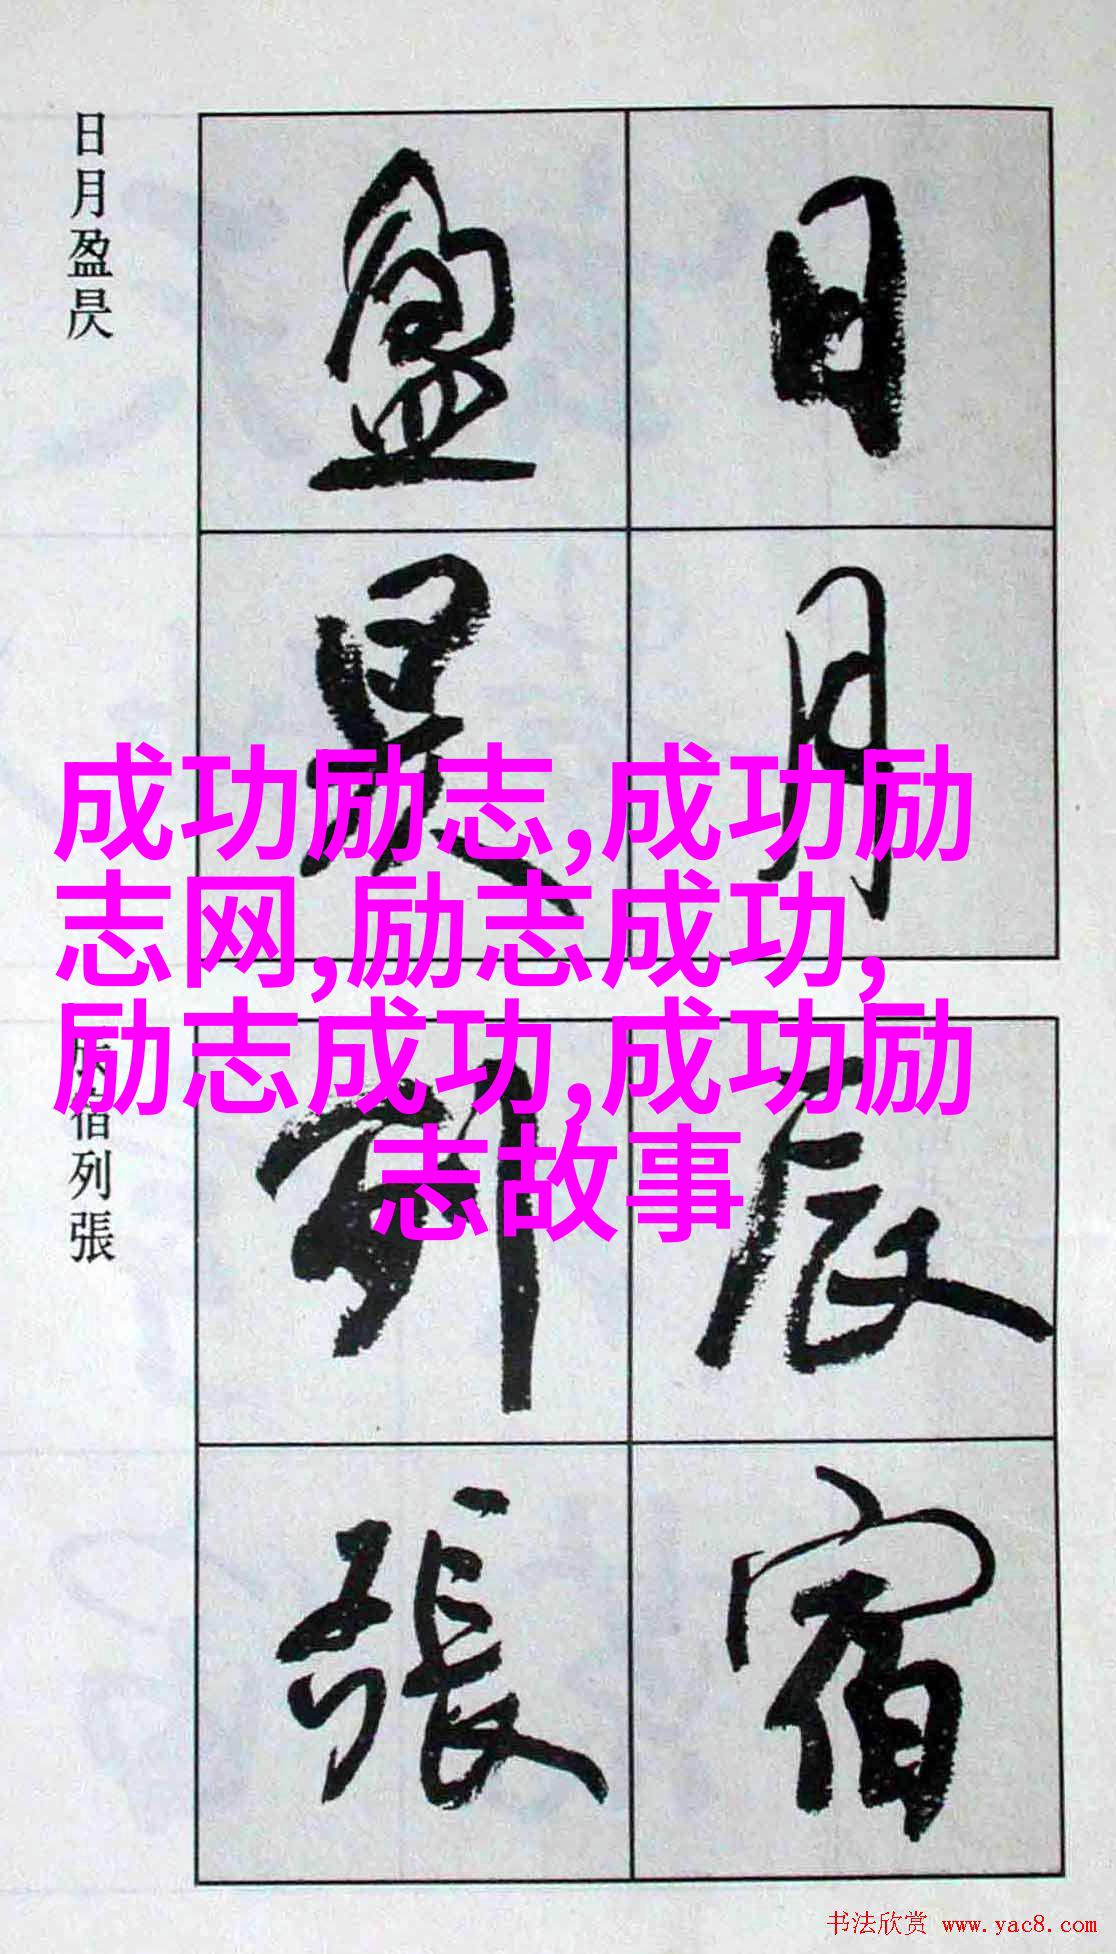 日月盈昃
日月
盈昃
成功励志,成功励
志网,励志成功,
励志成功,成功励
志故事
宿列張
辰宿
列張
书法欣赏 www.yac8.com